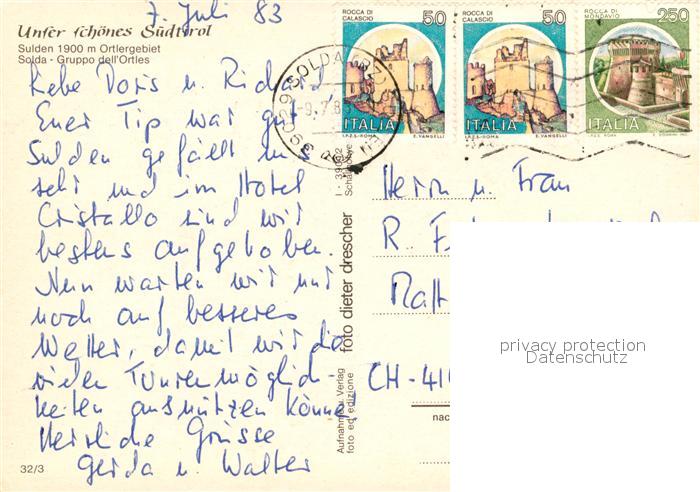 7. Juli 83
Unser schönes Südtirol
Sulden 1900 m Ortlergebiet
Solda - Gruppo dell'Ortles
Liebe Doris u. Richard
Euer Tip war gut
Sulden gefällt uns
sehr und im Hotel
Cristallo sind wir
bestens aufgehoben.
Nun warten wir nur
noch auf besseres
Wetter, damit wir die
vielen Tourenmöglich-
keiten ausnützen können.
Herzliche Grüsse
Gerda u. Walter
32/3
ROCCA DI
CALASCIO
50
ITALIA
I.P.Z.S.-ROMA E. VANGELLI
ROCCA DI
CALASCIO
50
ITALIA
I.P.Z.S.-ROMA E. VANGELLI
ROCCA DI
MONDAVIO
250
ITALIA
I.P.Z.S. ROMA
39029 SOLDA (BZ)
-9.7.83
foto dieter drescher
Aufnahme u. Verlag
foto ed edizione
Herrn u. Frau
R.
Matt
CH-41
nac
privacy protection
Datenschutz